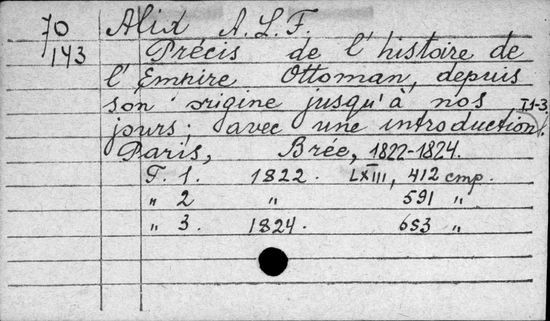 70 Alix A. L. F.
143 Précis de l'histoire de
l'Empire Ottoman, depuis
son origine jusqu'à nos T.1-3
jours; avec une introduction.
Paris, Brée, 1822-1824.
T. 1. 1822. LXIII, 412 стр.
„ 2 „ 591 „
„ 3. 1824. 653 „